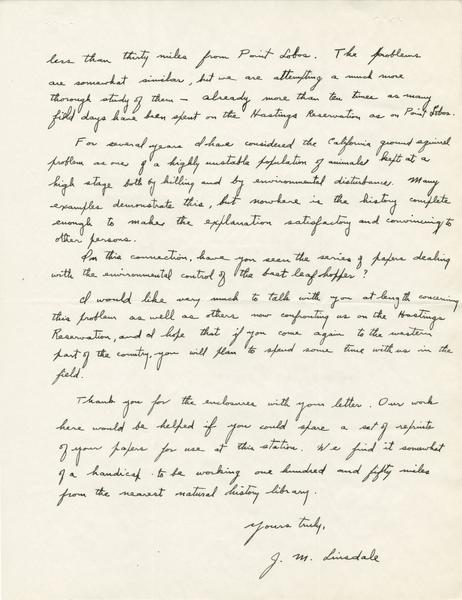 less than thirty miles from Point Lobos. The problems
are somewhat similar, but we are attempting a much more
thorough study of them — already more than ten times as many
field days have been spent on the Hastings Reservation as on Point Lobos.
For several years I have considered the California ground squirrel
problem as one of a highly unstable population of animals kept at a
high stage both by killing and by environmental disturbance. Many
examples demonstrate this, but nowhere is the history complete
enough to make the explanation satisfactory and convincing to
other persons.
In this connection, have you seen the series of papers dealing
with the environmental control of the beet leaf hopper?
I would like very much to talk with you at length concerning
this problem as well as others now confronting us on the Hastings
Reservation, and I hope that if you come again to the western
part of the country, you will plan to spend some time with us in the
field.
Thank you for the enclosures with your letter. Our work
here would be helped if you could spare a set of reprints
of your papers for use at this station. We find it somewhat
of a handicap to be working one hundred and fifty miles
from the nearest natural history library.
Yours truly,
J. M. Linsdale